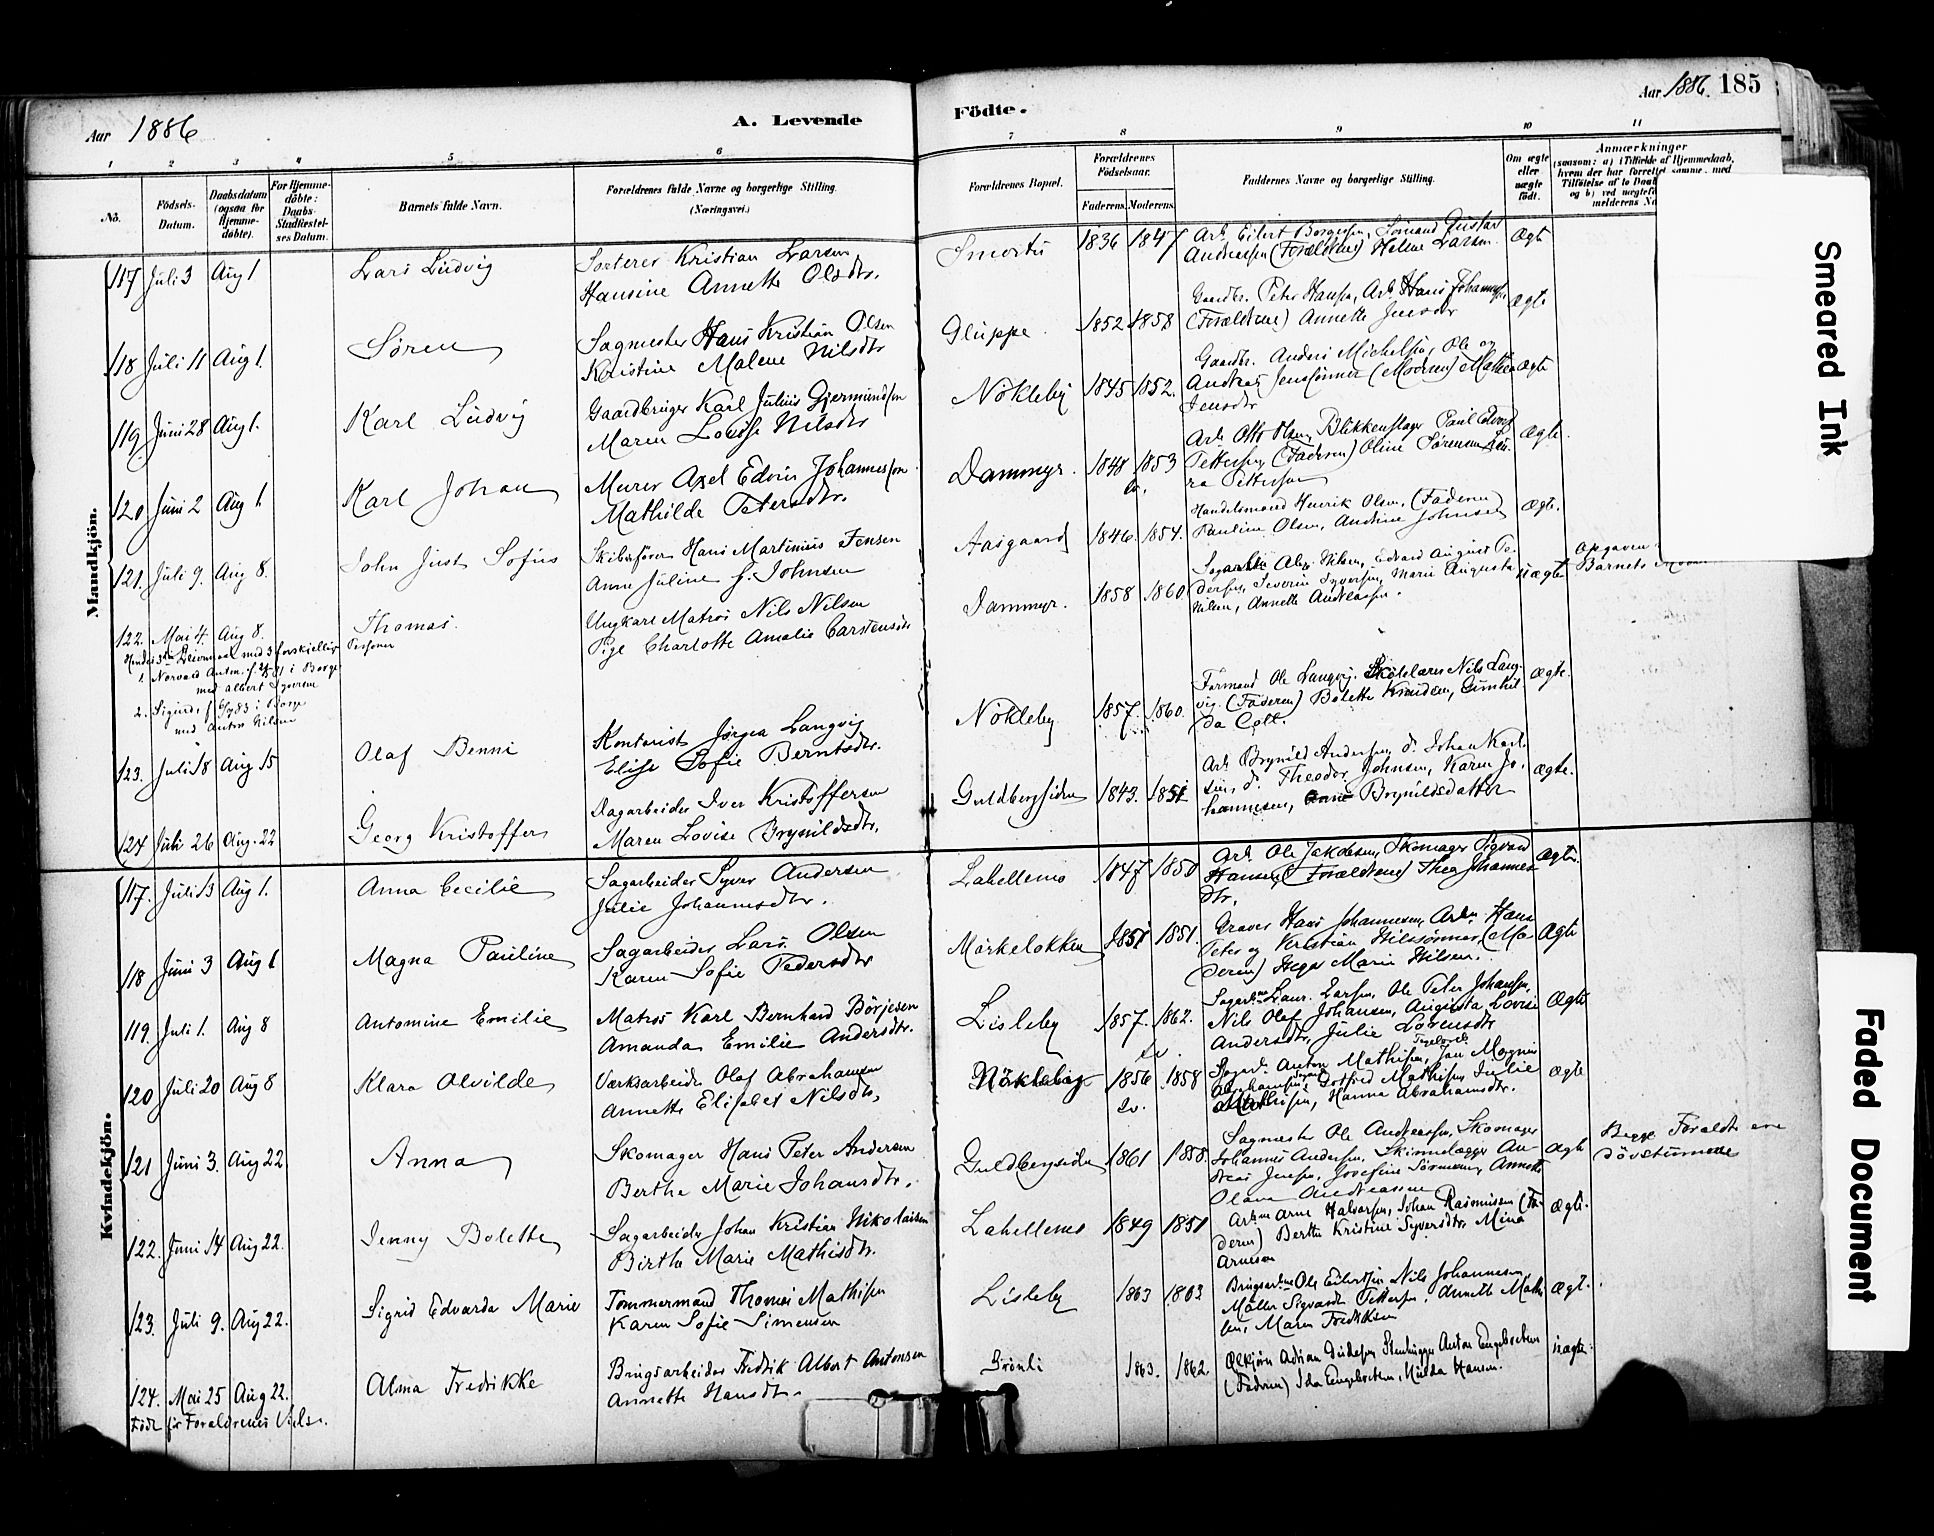 Aar 1886
A. Levende
Födte.
Aar 1886. 185
1 2 3 4 5 6 7 8 9 10 11
No.
Födsels-
Datum.
Daabsdatum
(ogsaa for
Hjemme-
döbte).
For Hjemme-
döbte:
Daabs-
Stadfæstel-
ses Datum.
Barnets fulde Navn.
Forældrenes fulde Navne og borgerlige Stilling.
(Næringsvei.)
Forældrenes Bopæl.
Forældrenes
Födselsaar.
Faderens. Moderens.
Faddernes Navne og borgerlige Stilling.
Om ægte
eller
uægte
födt.
Anmærkninger
(saasom: a) i Tilfælde af Hjemmedaab,
hvem der har forrettet samme, med
Smeared Ink
Faded Document
Mandkjön.
117 Juli 3 Aug 1 Lars Ludvig
Sorterer Kristian Larsen
Hansine Annette Olsdtr.
1836 1847
Ark. Eilert Borgersen, Sömand Gustav
Andreasen (Forældrene) Helene Larsen
Ægte
118 Juli 11 Aug 1. Sören
Sagmester Hans Kristian Olsen
Kristine Malene Nilsdtr
Gluppe 1852 1858
Gaardbr. Peter Hansen, Arb. Hans Johannesen
(Forældrene) Annette Jensdtr
Ægte
119 Juni 28 Aug 1. Karl Ludvig
Gaardbruger Karl Julius Gjermundsen
Maren Lovise Nilsdtr
Nökleby 1845 1852.
Gaardbr. Anders Michelsen, Ole og
Andreas Jenssönner (Moderen) Mathea
Jensdtr
Ægte
120 Juni 2 Aug 1 Karl Johan
Murer Axel Edvin Johannessen
Mathilde Petersdtr.
Dammyr. 1848 1853
Arb Otto Olsen, Blikkenslager Paul Edvard
Pettersen, (Faderen) Oline Sörensen,
Pettersen
Ægte.
121. Juli 9. Aug 8. John Just Sofus
Skibsförer Hans Martinius Jensen
Anne Juline f. Johnsen
Aasgaard 1846. 1854.
Handelsmand Henrik Olsen, (Faderen)
Pauline Olsen, Andrine Johnsen
Ægte.
122. Mai 4. Aug 8. Thomas.
Ungkarl Matros Nils Nilsen
Pige Charlotte Amalie Carstensdtr
Dammyr. 1858 1860
Nilsen, Edvard August Pe-
dersen, Severin Syversen, Marie Augusta
Nilsen, Annette Andreasen.
uægte
Opgaven
Barnets
med 3 forskjellige
Personer
i Borge
med Albert Syversen
2. Sigurd, f. i Borge
med Anton Nilsen
123. Juli 18 Aug 15 Olaf Benni
Kontorist Jörgen Langvig
Elise Sofie Berntsdtr.
Nökleby 1857. 1860.
Formand Ole Langvig. Skolelærer Nils Lang-
vig. (Faderen) Bolette Knudsen, Gunhil-
da Coll.
Ægte.
124 Juli 26 Aug. 22 Georg Kristoffer
Dagarbeider Iver Kristoffersen
Maren Lovise Brynildsdtr.
Guldbergsiden 1843. 1851
Arb Brynild Andersen, d. Johan Karl-
sen, d. Theodor Johnsen, Karen Jo-
hannesen, Anne Brynildsdatter
Ægte.
Kvindekjön.
117. Juli 13 Aug 1. Anna Cecilie
Sagarbeider Syver Andersen
Julie Johannesdtr.
Lahellemo 1847 1850
Arb. Ole Jakobsen, Skomager Sigvard
Hansen, (Forældrene) Thea Johannes
dtr.
Ægte.
118 Juni 3 Aug 1 Magna Pauline
Sagarbeider Lars Olsen
Karen Sofie Pedersdtr
Mörkelökken 1851 1851.
Graver Hans Johannesen, Arb. Hans
Peter og Kristian Nilssönner, (Mo-
deren) Inger Marie Nilsen.
Ægte
119. Juli 1. Aug 8 Antomine Emilie
Matros Karl Bernhard Börjesen
Amanda Emilie Andersdtr.
Lisleby 1857. 1862.
Sagarb. Laur. Larsen, Ole Peter Johansen,
Nils Olaf Johansen, Augusta Lovise
Andersdtr, Julie Lorensdtr
Ægte
120 Juli 20 Aug 8 Klara Alvilde
Værksarbeider Olaf Abrahamsen
Annette Elisabet Nilsdtr,
Nökleby 1856 1858
Sagarb. Anton Mathisen, Jan Magnus
Abrahamsen, Gotfred Mathisen, Julie
Mathisen, Hanna Abrahamsdtr.
Ægte
121 Juni 3. Aug 22 Anna
Skomager Hans Peter Andersen
Berthe Marie Johansdtr.
Guldbergsiden 1861 1858
Sagmester Ole Andreassen, Skomager
Johannes Andersen, Skindlægger An-
dreas Jensen, Josefine Sörensen, Annette
Olava Andreassen
Ægte
Begge Foraldre ere
dövstumme
122. Juni 14 Aug 22. Jenny Bolette
Sagarbeider Johan Kristian Nikolaisen
Birthe Marie Mathisdtr.
Lahellemo 1849 1851
Arbm Arne Halvorsen, Johan Rasmussen (Fa-
deren) Berthe Kristine Syversdtr, Mina
Arnesen
Ægte.
123. Juli 9. Aug 22. Sigrid Edvarda Marie
Tömmermand Thomas Mathisen
Karen Sofie Simensen
Lisleby 1863 1863
Brugsarb. Ole Eilertsen Nils Johannesen,
Möller Sigvard Pettersen, Annette Mathi-
sen, Maren Fredriksen
Ægt.
124. Mai 25 Aug 22. Alma Fredrikke
Brugsarbeider Fredrik Albert Antonsen
Annette Hansdtr.
Grönli 1863. 1862
Adrian Gudesen Stenhugger Anton Engebretsen
(Faderen) Ida Engebretsen, Hulda Hansen.
uægte.
Född för Forældrenes Vielse.